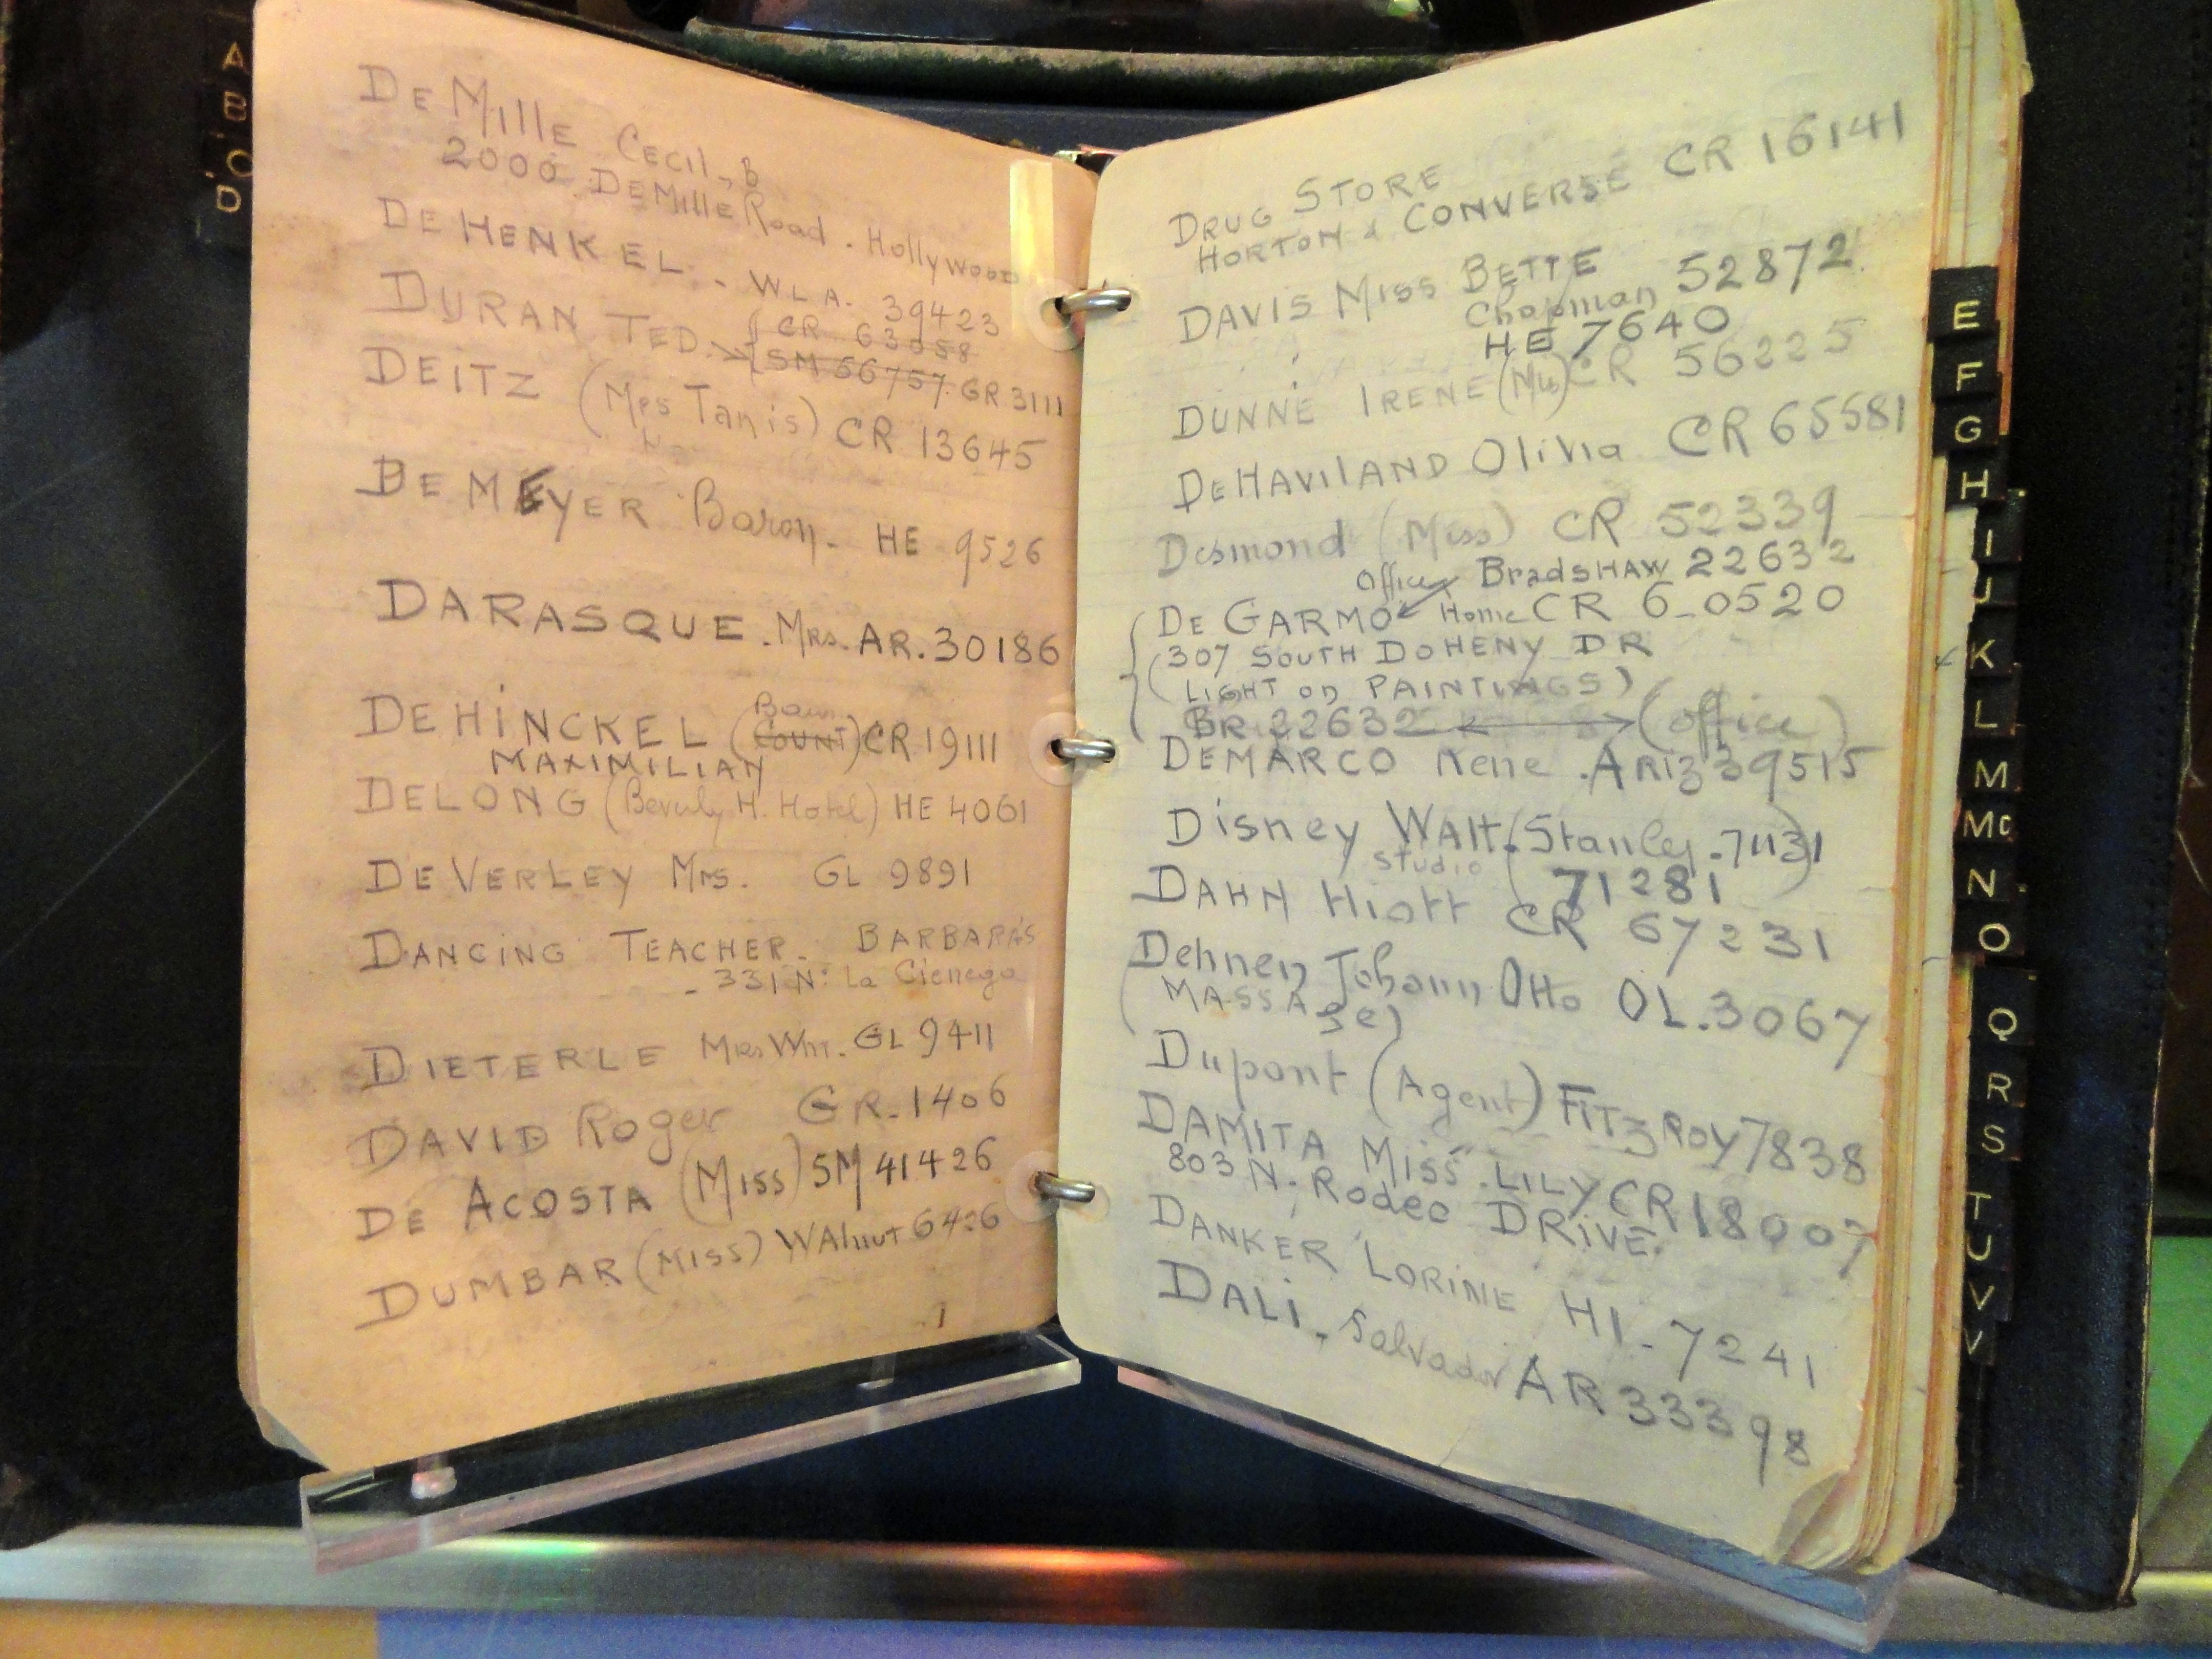 A
B
C
D
DEMille Cecil, B
2000. DEMille Road. Hollywood
DE HENKEL. - WLA. 39423
DURAN TED. CR 63058
SM 56757. GR 3111
DEITZ (Mrs Tanis) CR 13645
DE MEYER Baron. HE 9526
DARASQUE. Mrs. AR. 30186
DEHINCKEL (COUNT) CR 19111
MAXIMILIAN
DELONG (Beverly H. Hotel) HE 4061
DEVERLEY Mrs. GL 9891
DANCING TEACHER. BARBARA'S
- 331 N: La Cienega
DIETERLE Mrs Wm. GL 9411
DAVID Roger GR-1406
DE ACOSTA (Miss) SM 41426
DUMBAR (Miss) WAlnut 6426
DRUG STORE
HORTON & CONVERSE CR 16141
DAVIS Miss BETTE
Chapman 52872
HE 7640
DUNNE IRENE (Mrs) CR 56225
DEHAVILAND Olivia CR 65581
Desmond (Miss) CR 52339
Office BradSHAW 22632
DE GARMO Home CR 6-0520
307 SOUTH DOHENY DR
(LIGHT on PAINTINGS)
BR 22632 (office)
DEMARCO Rene. ARiz 39515
Disney Walt. (Stanley. 71131
Studio 71281)
DAHN Hiatt CR 67231
Dehnen Johann Otto OL. 3067
(MASSAge)
Dupont (Agent) FITZROY 7838
DAMITA Miss. LILY CR 18007
803 N. Rodeo DRIVE.
DANKER LORINE HI-7241
DALI. Salvador AR 33398
E
F
G
H
I
J
K
L
M
Mc
N
O
Q
R
S
T
U
V